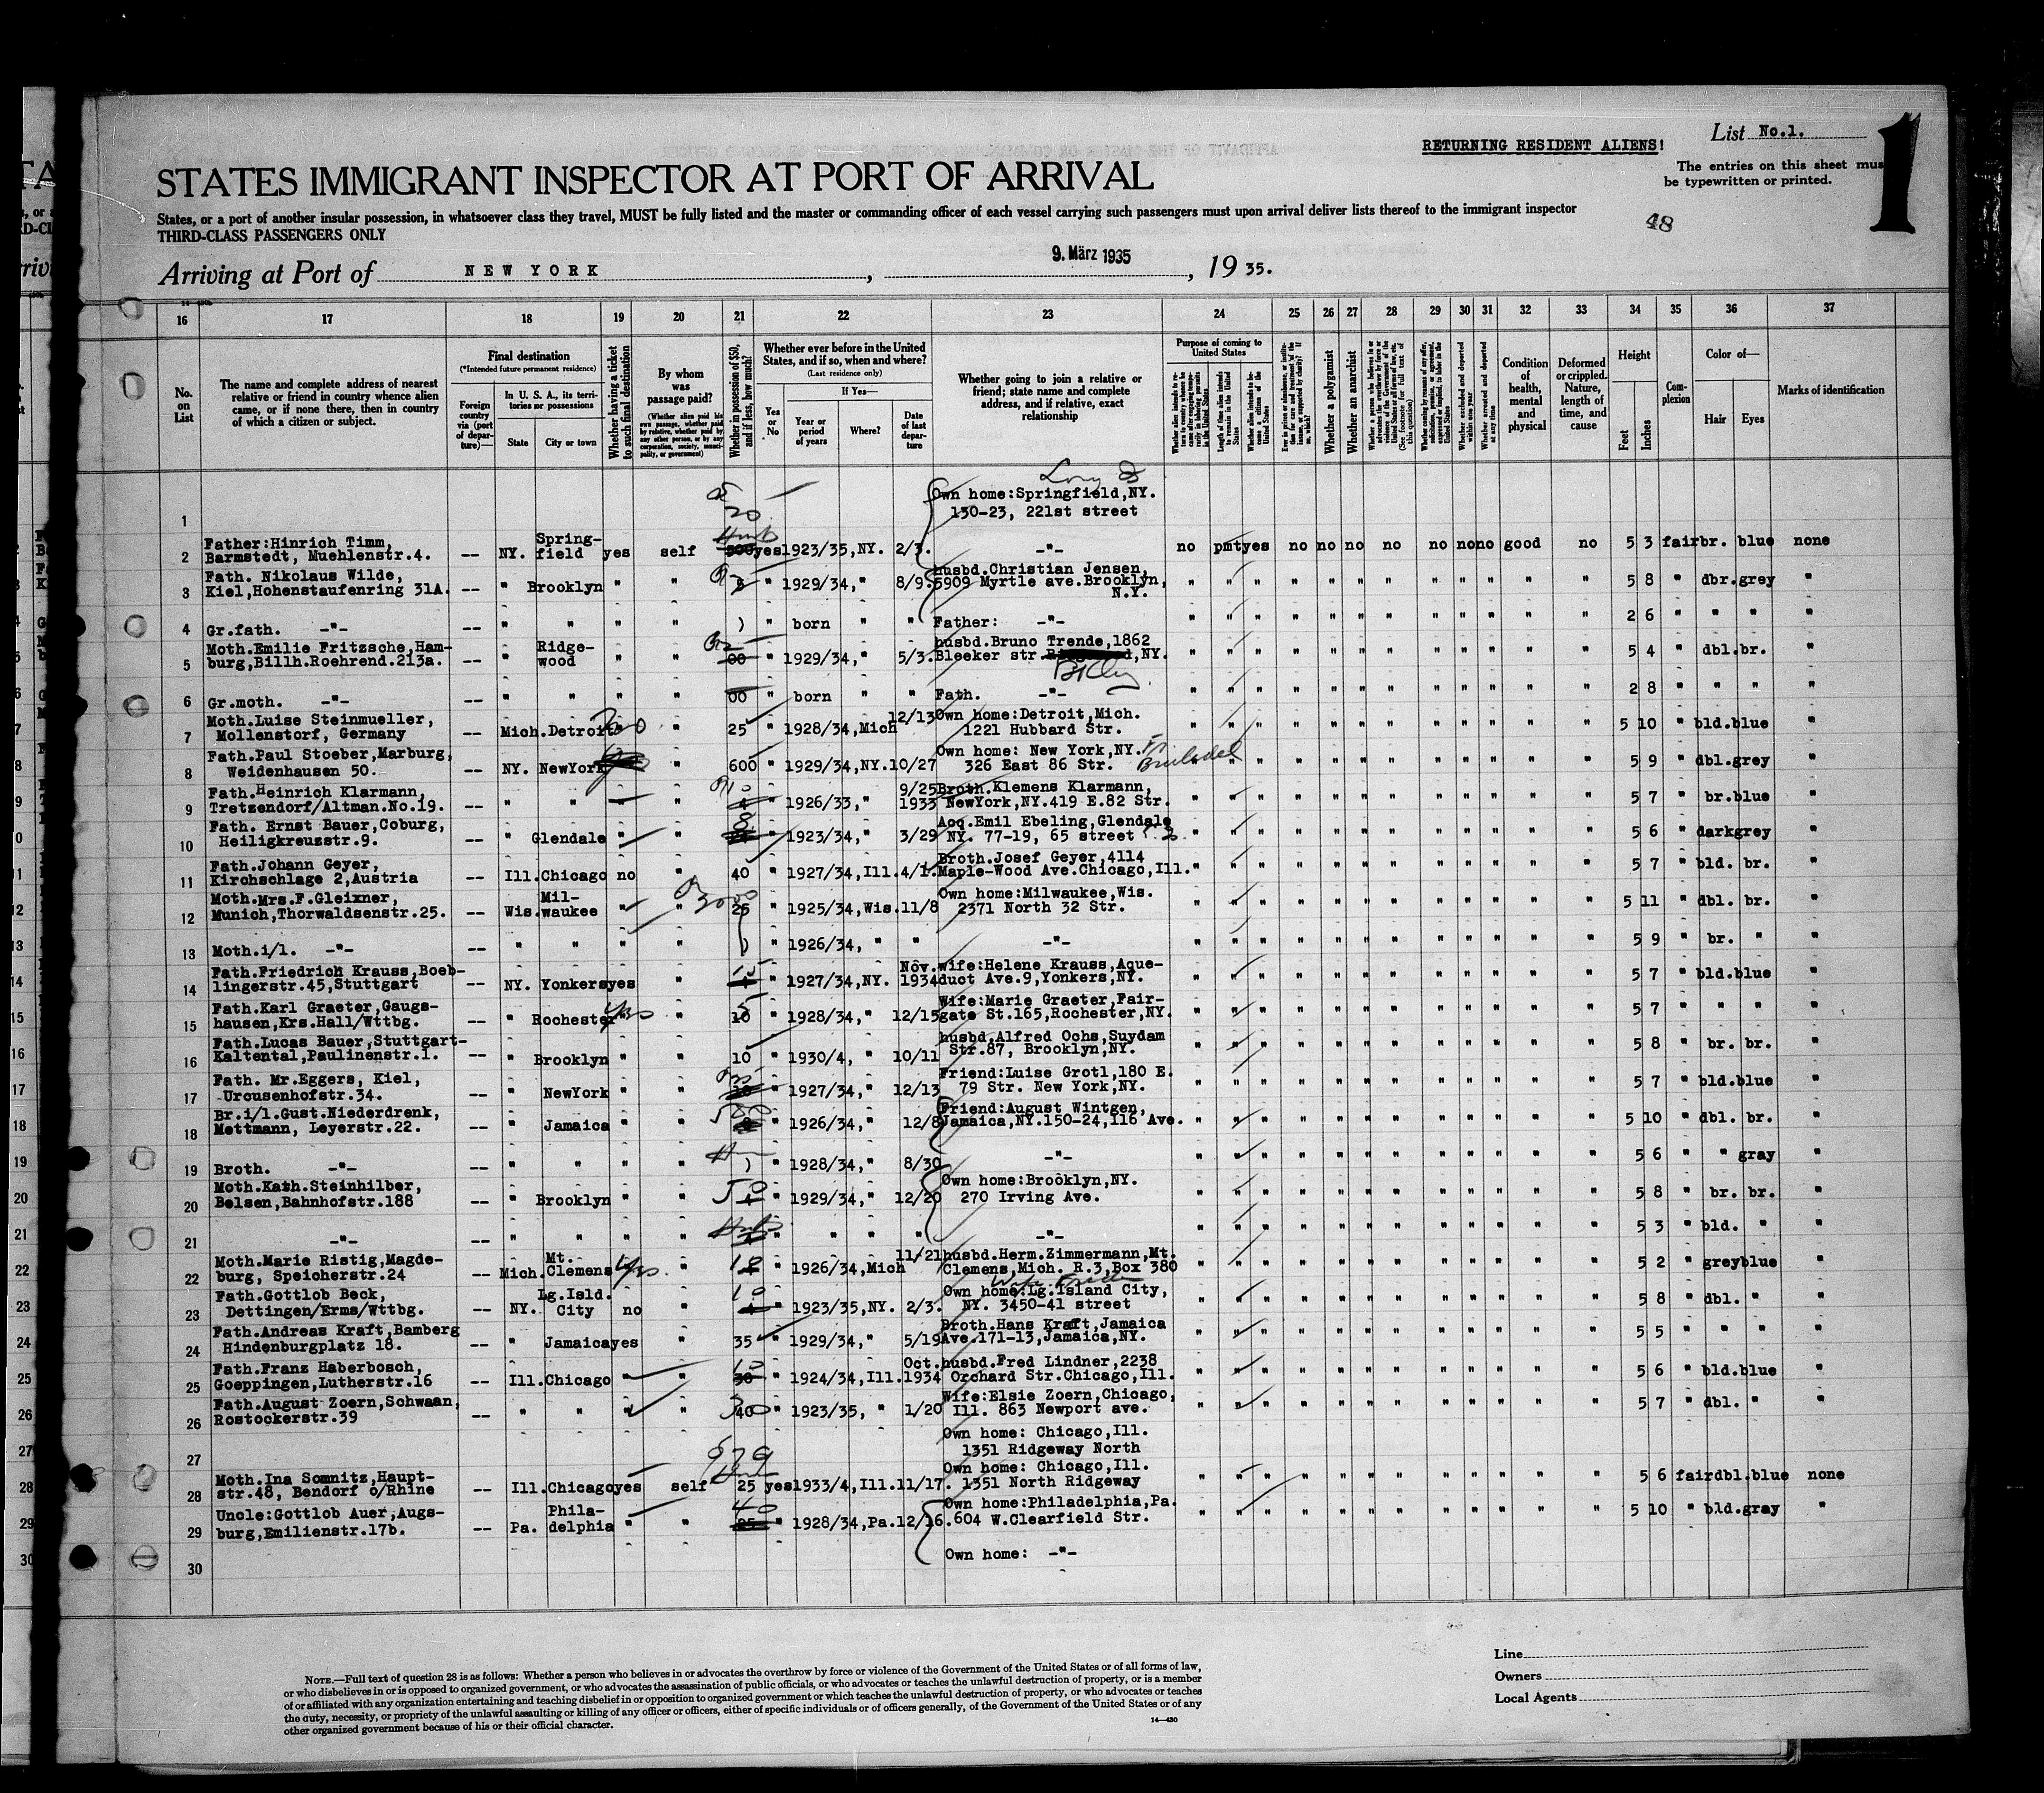 RETURNING RESIDENT ALIENS!
List No.1.
1
The entries on this sheet mus
be typewritten or printed.
STATES IMMIGRANT INSPECTOR AT PORT OF ARRIVAL
States, or a port of another insular possession, in whatsoever class they travel, MUST be fully listed and the master or commanding officer of each vessel carrying such passengers must upon arrival deliver lists thereof to the immigrant inspector
THIRD-CLASS PASSENGERS ONLY
48
Arriving at Port of NEW YORK , 9. März 1935 , 19 35.
16 17 18 19 20 21 22 23 24 25 26 27 28 29 30 31 32 33 34 35 36 37
No. on List
The name and complete address of nearest relative or friend in country whence alien came, or if none there, then in country of which a citizen or subject.
Final destination
(*Intended future permanent residence)
Foreign country via (port of departure)—
In U. S. A., its territories or possessions
State
City or town
Whether having a ticket to such final destination
By whom was passage paid?
(Whether alien paid his own passage, whether paid by relative, whether paid by any other person, or by any corporation, society, municipality, or government)
Whether in possession of $50, and if less, how much?
Whether ever before in the United States, and if so, when and where?
(Last residence only)
Yes or No
If Yes—
Year or period of years
Where?
Date of last departure
Whether going to join a relative or friend; state name and complete address, and if relative, exact relationship
Purpose of coming to United States
Whether a polygamist
Whether an anarchist
Condition of health, mental and physical
Deformed or crippled. Nature, length of time, and cause
Height
Feet
Inches
Complexion
Color of—
Hair
Eyes
Marks of identification
1 Own home:Springfield,NY.
130-23, 221st street
2 Father:Hinrich Timm, Spring-
Barmstedt, Muehlenstr.4. -- NY. field yes self yes 1923/35,NY. 2/3. -"- no pmt yes no no no no no no no good no 5 3 fair br. blue none
3 Fath. Nikolaus Wilde, husbd.Christian Jensen,
Kiel,Hohenstaufenring 31A. -- " Brooklyn " " " 1929/34, " 8/9. 5909 Myrtle ave.Brooklyn, 5 8 " dbr. grey "
N.Y.
4 Gr.fath. -"- -- " " " " ) " born " " Father: -"- 2 6 " " " "
5 Moth.Emilie Fritzsche,Ham- Ridge- husbd.Bruno Trende,1862
burg,Billh.Roehrend.213a. -- " wood " " 00 " 1929/34, " 5/3. Bleeker str. ,NY. 5 4 " dbl. br. "
6 Gr.moth. -"- -- " " " " 00 " born " " Fath. -"- 2 8 " " " "
7 Moth.Luise Steinmueller, 12/13 Own home:Detroit,Mich.
Mollenstorf, Germany -- Mich. Detroit " 25 " 1928/34,Mich 1221 Hubbard Str. 5 10 " bld. blue "
8 Fath.Paul Stoeber,Marburg, Own home: New York,NY.
Weidenhausen 50. -- NY. NewYork " 600 " 1929/34,NY. 10/27 326 East 86 Str. 5 9 " dbl. grey "
9 Fath.Heinrich Klarmann, 9/25 Broth.Klemens Klarmann,
Tretzendorf/Altman.No.19. -- " " " " 1926/33, " 1933 NewYork,NY.419 E.82 Str. 5 7 " br. blue "
10 Fath. Ernst Bauer,Coburg, Acq.Emil Ebeling,Glendale
Heiligkreuzstr.9. -- " Glendale " " " 1923/34, " 3/29 NY. 77-19, 65 street 5 6 " dark grey "
11 Fath.Johann Geyer, Broth.Josef Geyer,4114
Kirchschlage 2,Austria -- Ill. Chicago no " 40 " 1927/34,Ill. 4/1. Maple-Wood Ave.Chicago,Ill. 5 7 " bld. br. "
12 Moth.Mrs.F.Gleixner, Mil- Own home:Milwaukee,Wis.
Munich,Thorwaldsenstr.25. -- Wis. waukee " " 25 " 1925/34,Wis. 11/8 2371 North 32 Str. 5 11 " dbl. br. "
13 Moth.i/l. -"- -- " " " " ) " 1926/34, " " -"- 5 9 " br. " "
14 Fath.Friedrich Krauss,Boeb- Nov. wife:Helene Krauss,Aque-
lingerstr.45,Stuttgart -- NY. Yonkers yes " 15 " 1927/34,NY. 1934 duct Ave.9,Yonkers,NY. 5 7 " bld. blue "
15 Fath.Karl Graeter,Gaugs- Wife:Marie Graeter,Fair-
hausen,Krs.Hall/Wttbg. -- " Rochester yes " 10 " 1928/34, " 12/15 gate St.165,Rochester,NY. 5 7 " " " "
16 Fath.Lucas Bauer,Stuttgart- husbd.Alfred Ochs,Suydam
Kaltental,Paulinenstr.1. -- " Brooklyn " " 10 " 1930/4, " 10/11 Str.87, Brooklyn,NY. 5 8 " br. br. "
17 Fath. Mr.Eggers, Kiel, Friend:Luise Grotl,180 E.
Urcusenhofstr.34. -- " NewYork " " " 1927/34, " 12/13 79 Str. New York,NY. 5 7 " bld. blue "
18 Br.i/l.Gust.Niederdrenk, Friend:August Wintgen,
Mettmann, Leyerstr.22. -- " Jamaica " " " 1926/34, " 12/8 Jamaica,NY.150-24,116 Ave. 5 10 " dbl. br. "
19 Broth. -"- -- " " " " ) " 1928/34, " 8/30 -"- 5 6 " " gray "
20 Moth.Kath.Steinhilber, Own home:Brooklyn,NY.
Belsen,Bahnhofstr.188 -- " Brooklyn " " 50 " 1929/34, " 12/20 270 Irving Ave. 5 8 " br. br. "
21 -"- -- " " " " " " " " -"- 5 3 " bld. " "
22 Moth.Marie Ristig,Magde- Mt. 11/21 husbd.Herm.Zimmermann,Mt.
burg, Speicherstr.24 -- Mich. Clemens yes " " 1926/34,Mich Clemens,Mich. R.3,Box 380 5 2 " grey blue "
23 Fath.Gottlob Beck, Lg.Isld. Own home:Lg.Island City,
Dettingen/Erms/Wttbg. -- NY. City no " 10 " 1923/35,NY. 2/3. NY. 3450-41 street 5 8 " dbl. " "
24 Fath.Andreas Kraft,Bamberg Broth.Hans Kraft,Jamaica
Hindenburgplatz 18. -- " Jamaica yes " 35 " 1929/34, " 5/19 Ave.171-13,Jamaica,NY. 5 5 " " " "
25 Fath.Franz Haberbosch, Oct. husbd.Fred Lindner,2238
Goeppingen,Lutherstr.16 -- Ill. Chicago " " 10 30 " 1924/34,Ill. 1934 Orchard Str.Chicago,Ill. 5 6 bld. blue "
26 Fath.August Zoern,Schwaan, Wife:Elsie Zoern,Chicago,
Rostockerstr.39 -- " " " " 40 " 1923/35, " 1/20 Ill. 863 Newport ave. 5 7 " dbl. " "
27 Own home: Chicago,Ill.
1351 Ridgeway North
28 Moth.Ina Somnitz,Haupt- Own home: Chicago, Ill.
str.48, Bendorf o/Rhine -- Ill. Chicago yes self 25 yes 1933/4,Ill. 11/17. 1351 North Ridgeway 5 6 fair dbl. blue none
29 Uncle:Gottlob Auer,Augs- Phila- Own home:Philadelphia,Pa.
burg,Emilienstr.17b. -- Pa. delphia " " 40 " 1928/34,Pa. 12/16. 604 W.Clearfield Str. 5 10 " bld. gray "
30 Own home: -"-
NOTE.—Full text of question 28 is as follows: Whether a person who believes in or advocates the overthrow by force or violence of the Government of the United States or of all forms of law,
or who disbelieves in or is opposed to organized government, or who advocates the assassination of public officials, or who advocates or teaches the unlawful destruction of property, or is a member
of or affiliated with any organization entertaining and teaching disbelief in or opposition to organized government or which teaches the unlawful destruction of property, or who advocates or teaches
the duty, necessity, or propriety of the unlawful assaulting or killing of any officer or officers, either of specific individuals or of officers generally, of the Government of the United States or of any
other organized government because of his or their official character.
14—430
Line
Owners
Local Agents